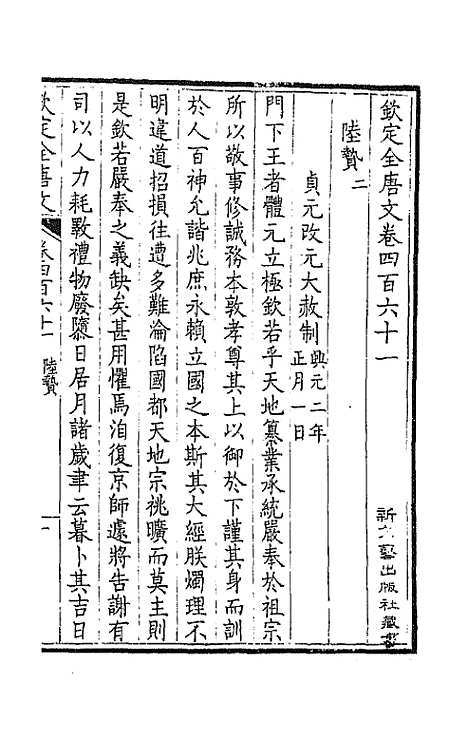 欽定全唐文卷四百六十一
新文藝出版社藏書
陸贄二
貞元改元大赦制興元二年正月一日
門下王者體元立極欽若乎天地纂業承統嚴奉於祖宗
所以敬事修誠務本敦孝尊其上以御於下謹其身而訓
於人百神允諧兆庶永賴立國之本斯其大經朕燭理不
明違道招損往遭多難淪陷國都天地宗祧曠而莫主則
是欽若嚴奉之義缺矣甚用懼焉洎復京師遽將告謝有
司以人力耗斁禮物廢隳日居月諸歲聿云暮卜其吉日
欽定全唐文 卷四百六十一 陸贄 一